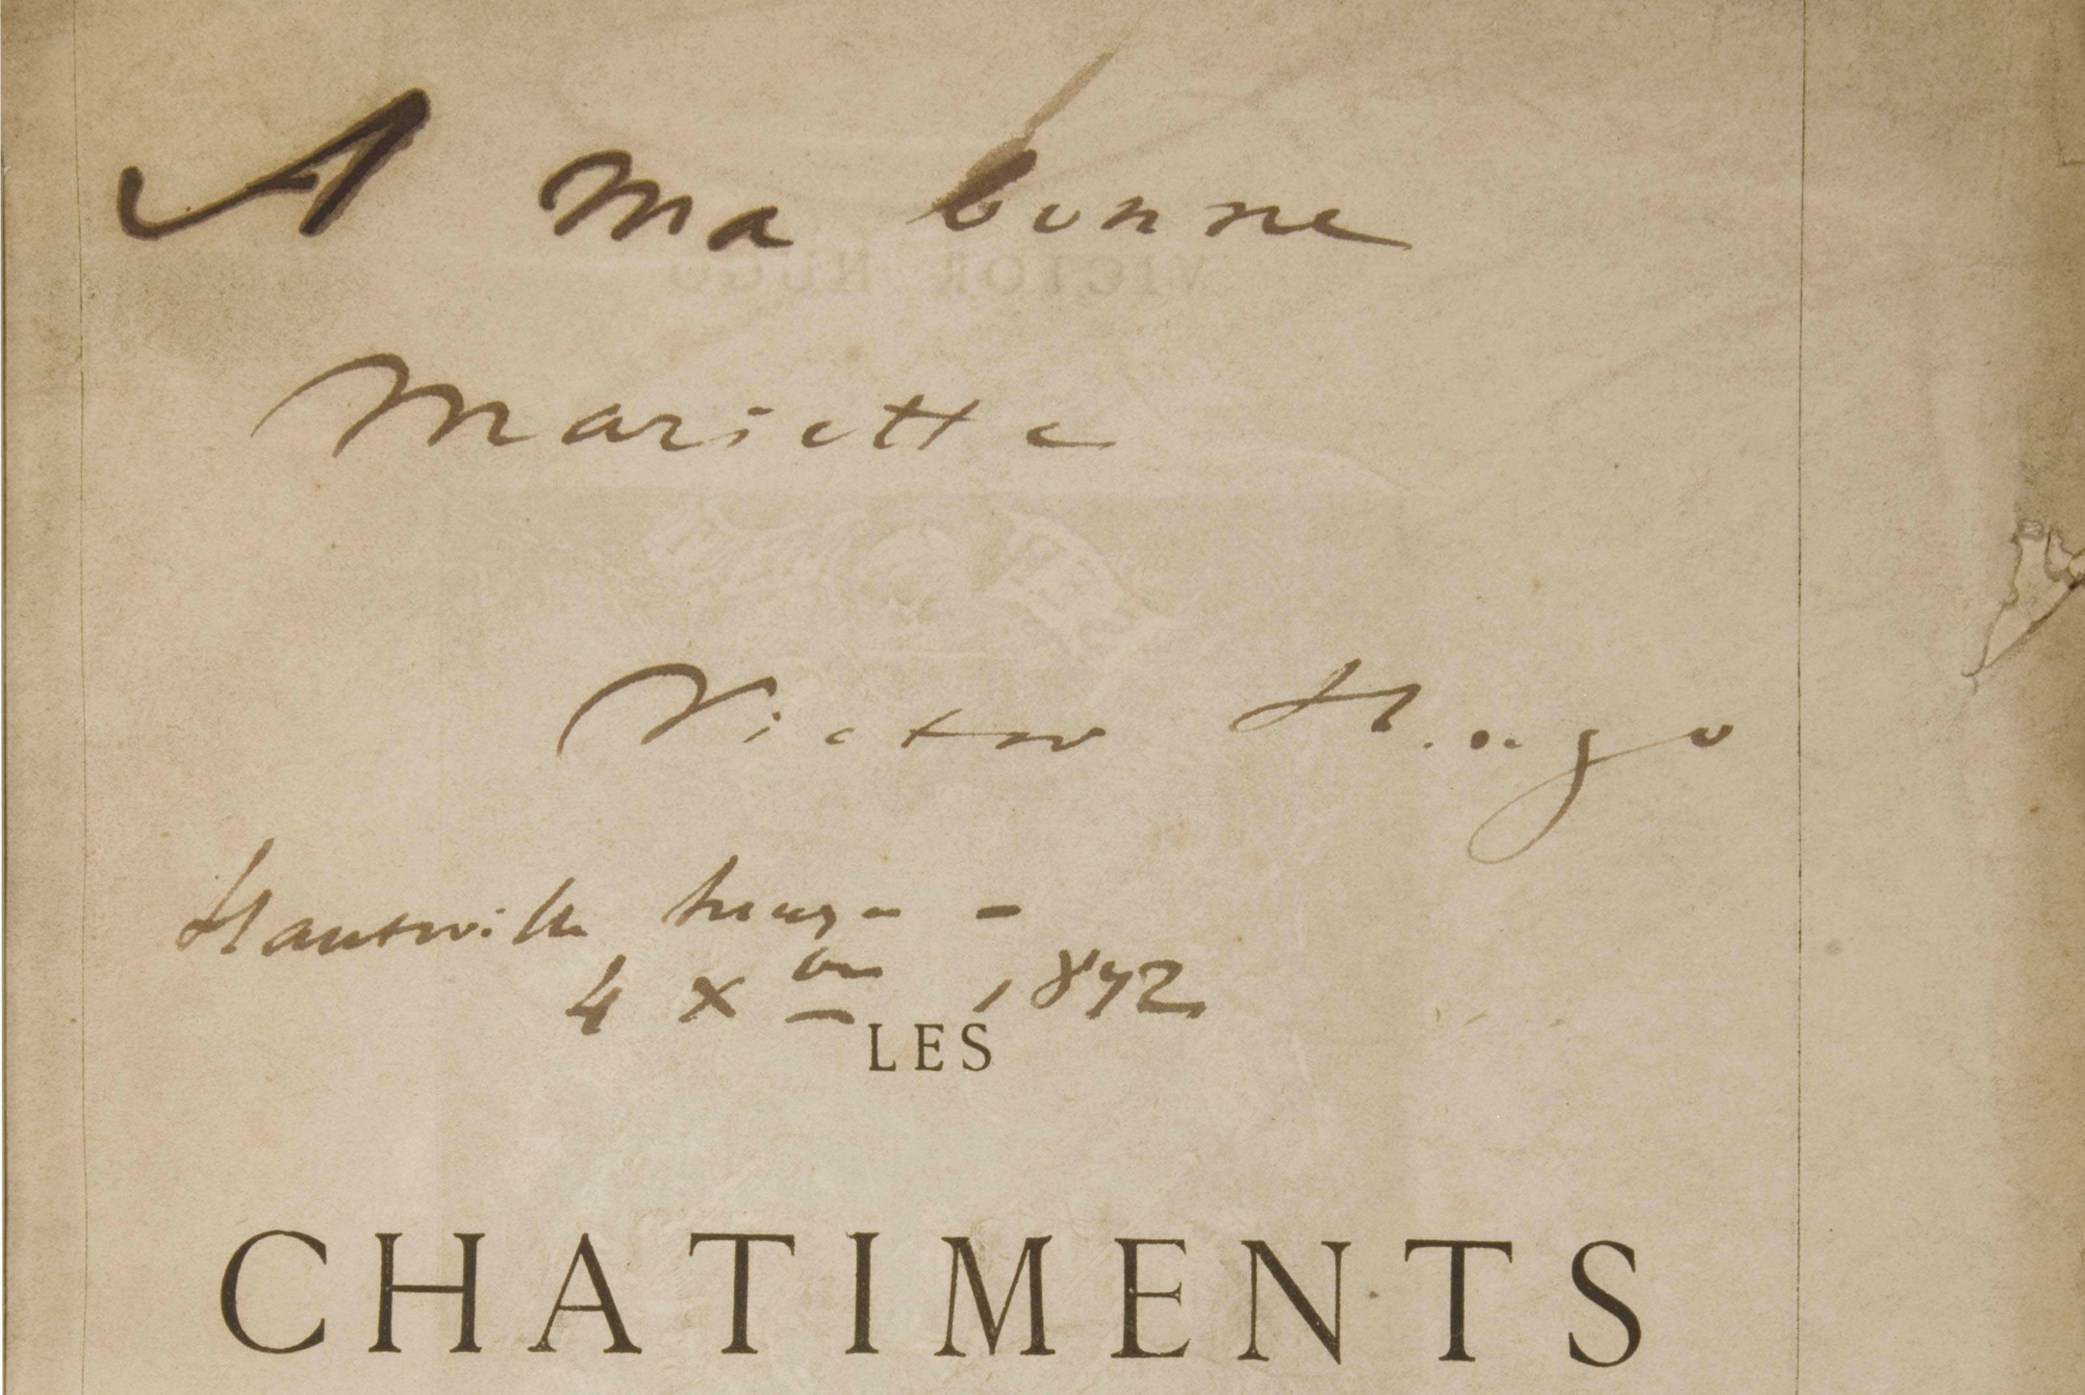 A ma bonne
VICTOR HUGO
Mariette
Victor Hugo
Hauteville house –
4 Xbre 1872
LES
CHATIMENTS